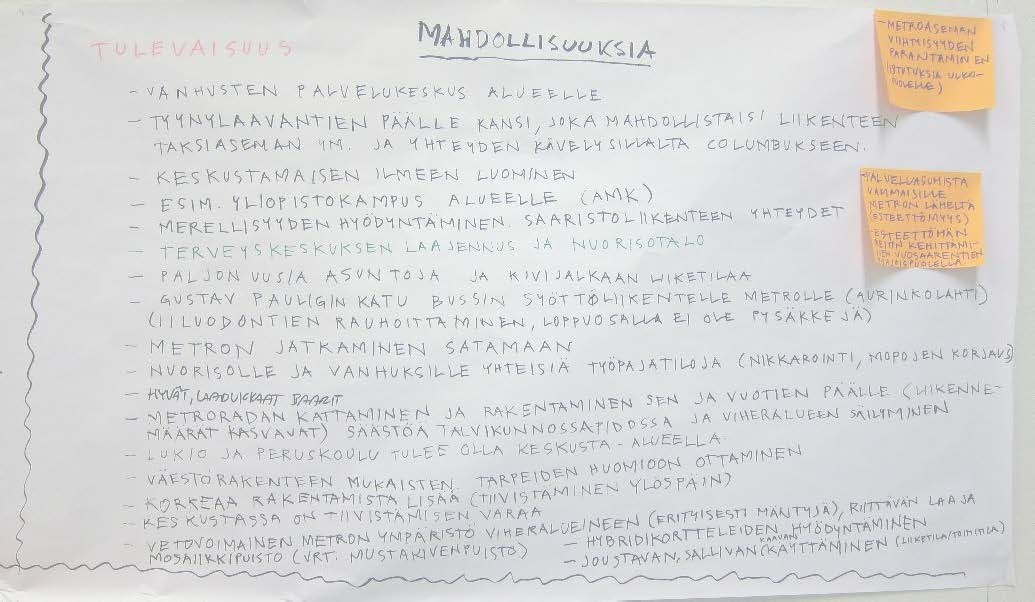 TULEVAISUUS
MAHDOLLISUUKSIA
- VANHUSTEN PALVELUKESKUS ALUEELLE
- TYYNYLAAVANTIEN PÄÄLLE KANSI, JOKA MAHDOLLISTAISI LIIKENTEEN
TAKSIASEMAN YM. JA YHTEYDEN KÄVELYSILLALTA COLUMBUKSEEN.
- KESKUSTAMAISEN ILMEEN LUOMINEN
- ESIM. YLIOPISTOKAMPUS ALUEELLE (AMK)
- MERELLISYYDEN HYÖDYNTÄMINEN. SAARISTOLIIKENTEEN YHTEYDET
- TERVEYSKESKUKSEN LAAJENNUS JA NUORISOTALO
- PALJON UUSIA ASUNTOJA JA KIVIJALKAAN LIIKETILAA
- GUSTAV PAULIGIN KATU BUSSIN SYÖTTÖLIIKENTELLE METROLLE (AURINKOLAHTI)
(IILUODONTIEN RAUHOITTAMINEN, LOPPUOSALLA EI OLE PYSÄKKEJÄ)
- METRON JATKAMINEN SATAMAAN
- NUORISOLLE JA VANHUKSILLE YHTEISIÄ TYÖPAJATILOJA (NIKKAROINTI, MOPOJEN KORJAUS)
- HYVÄT, LAADUKKAAT BAARIT
- METRORADAN KATTAMINEN JA RAKENTAMINEN SEN JA VUOTIEN PÄÄLLE (LIIKENNE-
MÄÄRÄT KASVAVAT) SÄÄSTÖÄ TALVIKUNNOSSAPIDOSSA JA VIHERALUEEN SÄILYMINEN
- LUKIO JA PERUSKOULU TULEE OLLA KESKUSTA-ALUEELLA.
- VÄESTÖRAKENTEEN MUKAISTEN TARPEIDEN HUOMIOON OTTAMINEN
- KORKEAA RAKENTAMISTA LISÄÄ (TIIVISTÄMINEN YLÖSPÄIN)
- KESKUSTASSA ON TIIVISTÄMISEN VARAA
- VETOVOIMAINEN METRON YMPÄRISTÖ VIHERALUEINEEN (ERITYISESTI MÄNTYJÄ), RIITTÄVÄN LAAJA
MOSAIIKKIPUISTO (VRT. MUSTAKIVENPUISTO)
- HYBRIDIKORTTELEIDEN HYÖDYNTÄMINEN
- JOUSTAVAN, SALLIVAN KAAVAN KÄYTTÄMINEN (LIIKETILA/TOIMITILA)
- METROASEMAN
VIIHTYISYYDEN
PARANTAMINEN
(ISTUTUKSIA ULKO-
PUOLELLE)
- PALVELUASUMISTA
VAMMAISILLE
METRON LÄHELTÄ
(ESTEETTÖMYYS)
- ESTEETTÖMÄN
REITIN KEHITTÄMI-
NEN VUOSAARENTIEN